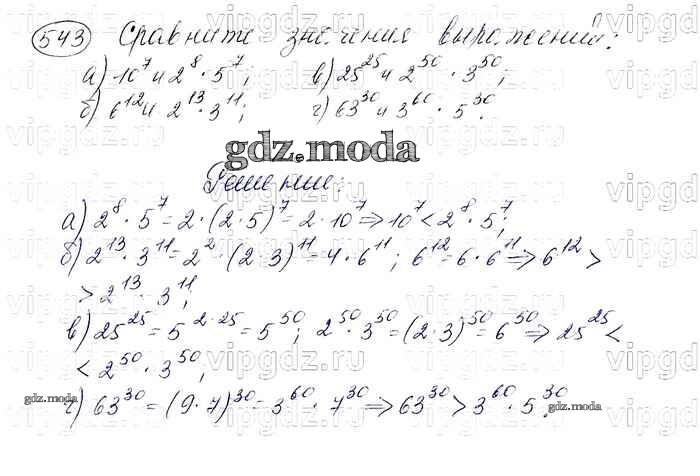 543 Сравните значения выражений:
а) 10⁷ и 2⁸ · 5⁷; в) 25²⁵ и 2⁵⁰ · 3⁵⁰;
б) 6¹² и 2¹³ · 3¹¹; г) 63³⁰ и 3⁶⁰ · 5³⁰.
gdz.moda
Решение:
а) 2⁸ · 5⁷ = 2 · (2 · 5)⁷ = 2 · 10⁷ ⇒ 10⁷ < 2⁸ · 5⁷;
б) 2¹³ · 3¹¹ = 2² · (2 · 3)¹¹ = 4 · 6¹¹; 6¹² = 6 · 6¹¹ ⇒ 6¹² >
> 2¹³ · 3¹¹;
в) 25²⁵ = 5²·²⁵ = 5⁵⁰; 2⁵⁰ · 3⁵⁰ = (2 · 3)⁵⁰ = 6⁵⁰ ⇒ 25²⁵ <
< 2⁵⁰ · 3⁵⁰;
gdz.moda
г) 63³⁰ = (9 · 7)³⁰ = 3⁶⁰ · 7³⁰ ⇒ 63³⁰ > 3⁶⁰ · 5³⁰.
gdz.moda
vipgdz.ru